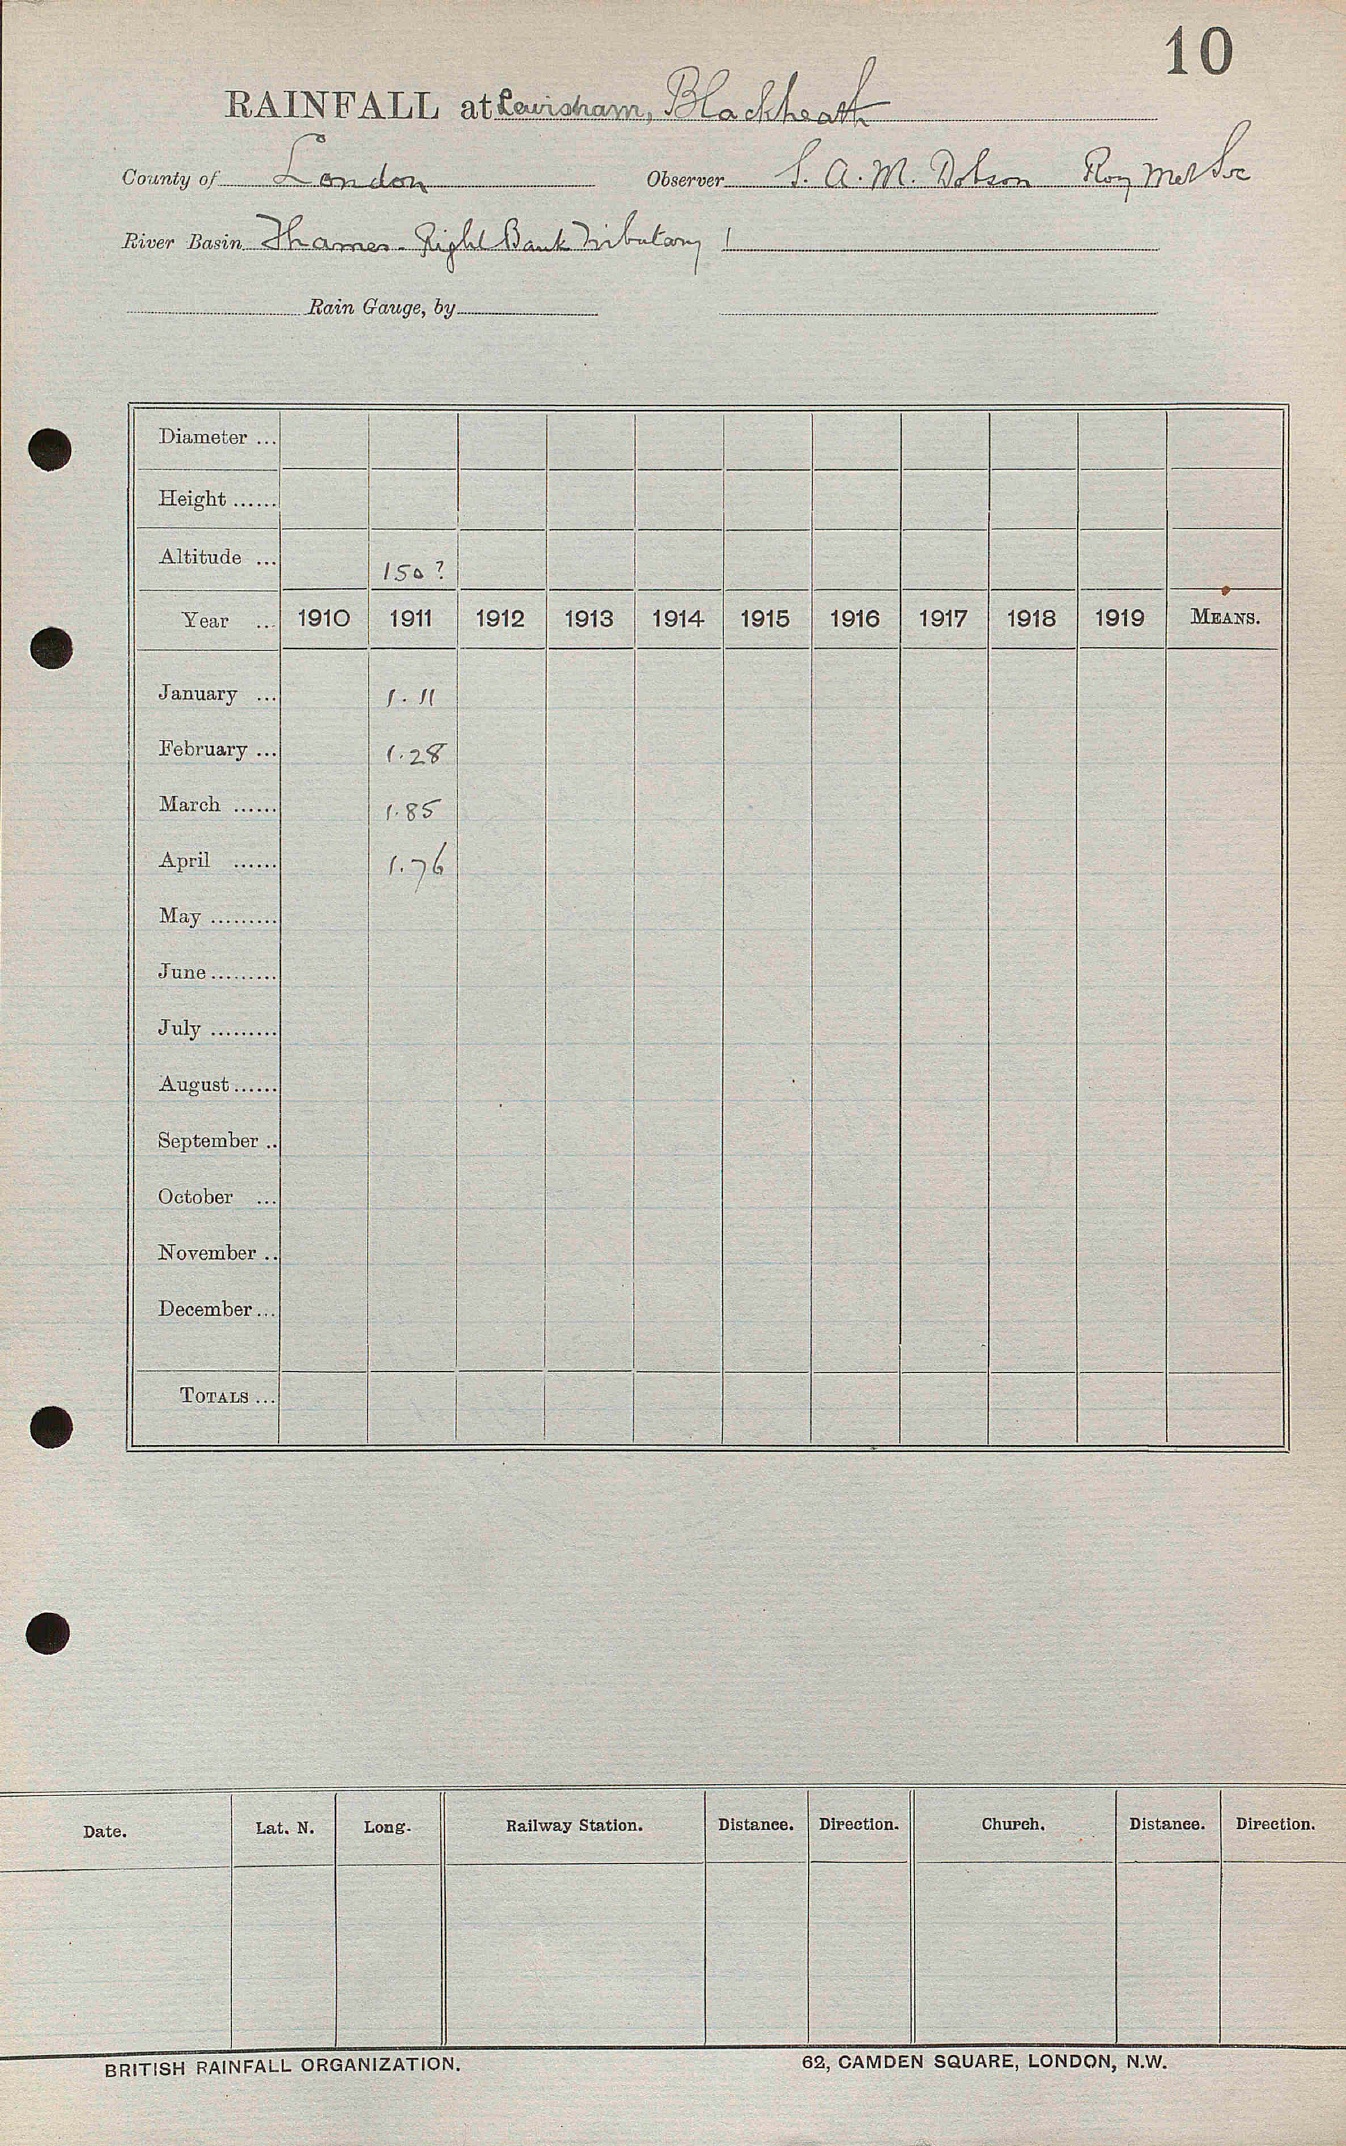 10
RAINFALL at Lewisham, Blackheath
County of London Observer S. A. M. Dobson Roy Met Soc
River Basin Thames - Right Bank Tributary 1
Rain Gauge, by
Diameter ...
Height ......
Altitude ... 150 ?
Year ... 1910 1911 1912 1913 1914 1915 1916 1917 1918 1919 MEANS.
January ... 1.11
February ... 1.28
March ...... 1.85
April ...... 1.76
May .........
June .........
July .........
August ......
September ..
October ...
November ..
December ...
TOTALS ...
Date. Lat. N. Long. Railway Station. Distance. Direction. Church. Distance. Direction.
BRITISH RAINFALL ORGANIZATION. 62, CAMDEN SQUARE, LONDON, N.W.